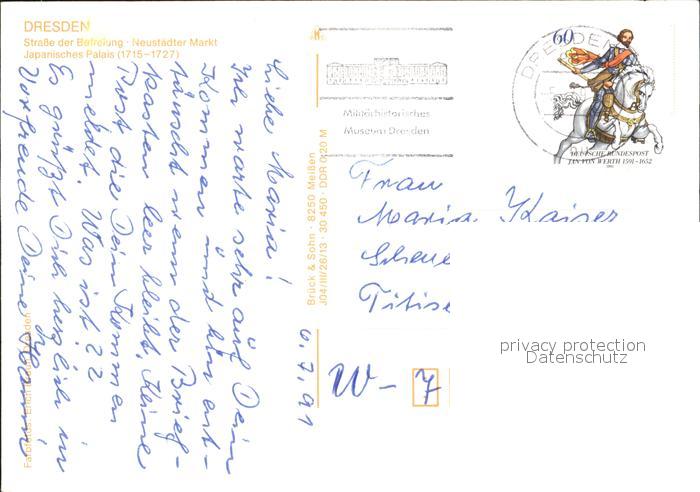 DRESDEN
Straße der Befreiung · Neustädter Markt
Japanisches Palais (1715–1727)
6.7.91
Liebe Maria!
Ich warte sehr auf Dein
Kommen und bin ent-
täuscht wenn der Brief-
kasten leer bleibt. Keine
Post die Dein Kommen
meldet. Was ist??
Es grüßt Dich herzlich in
Vorfreude Deine Hanni
Brück & Sohn · 8250 Meißen
J04/III/26/13 · 30 450 · DDR 0,20 M
Militärhistorisches
Museum Dresden
DRESDEN
60
DEUTSCHE BUNDESPOST
JAN VON WERTH 1591–1652
Frau
Maria Kaiser
Titise
W – 7
privacy protection
Datenschutz